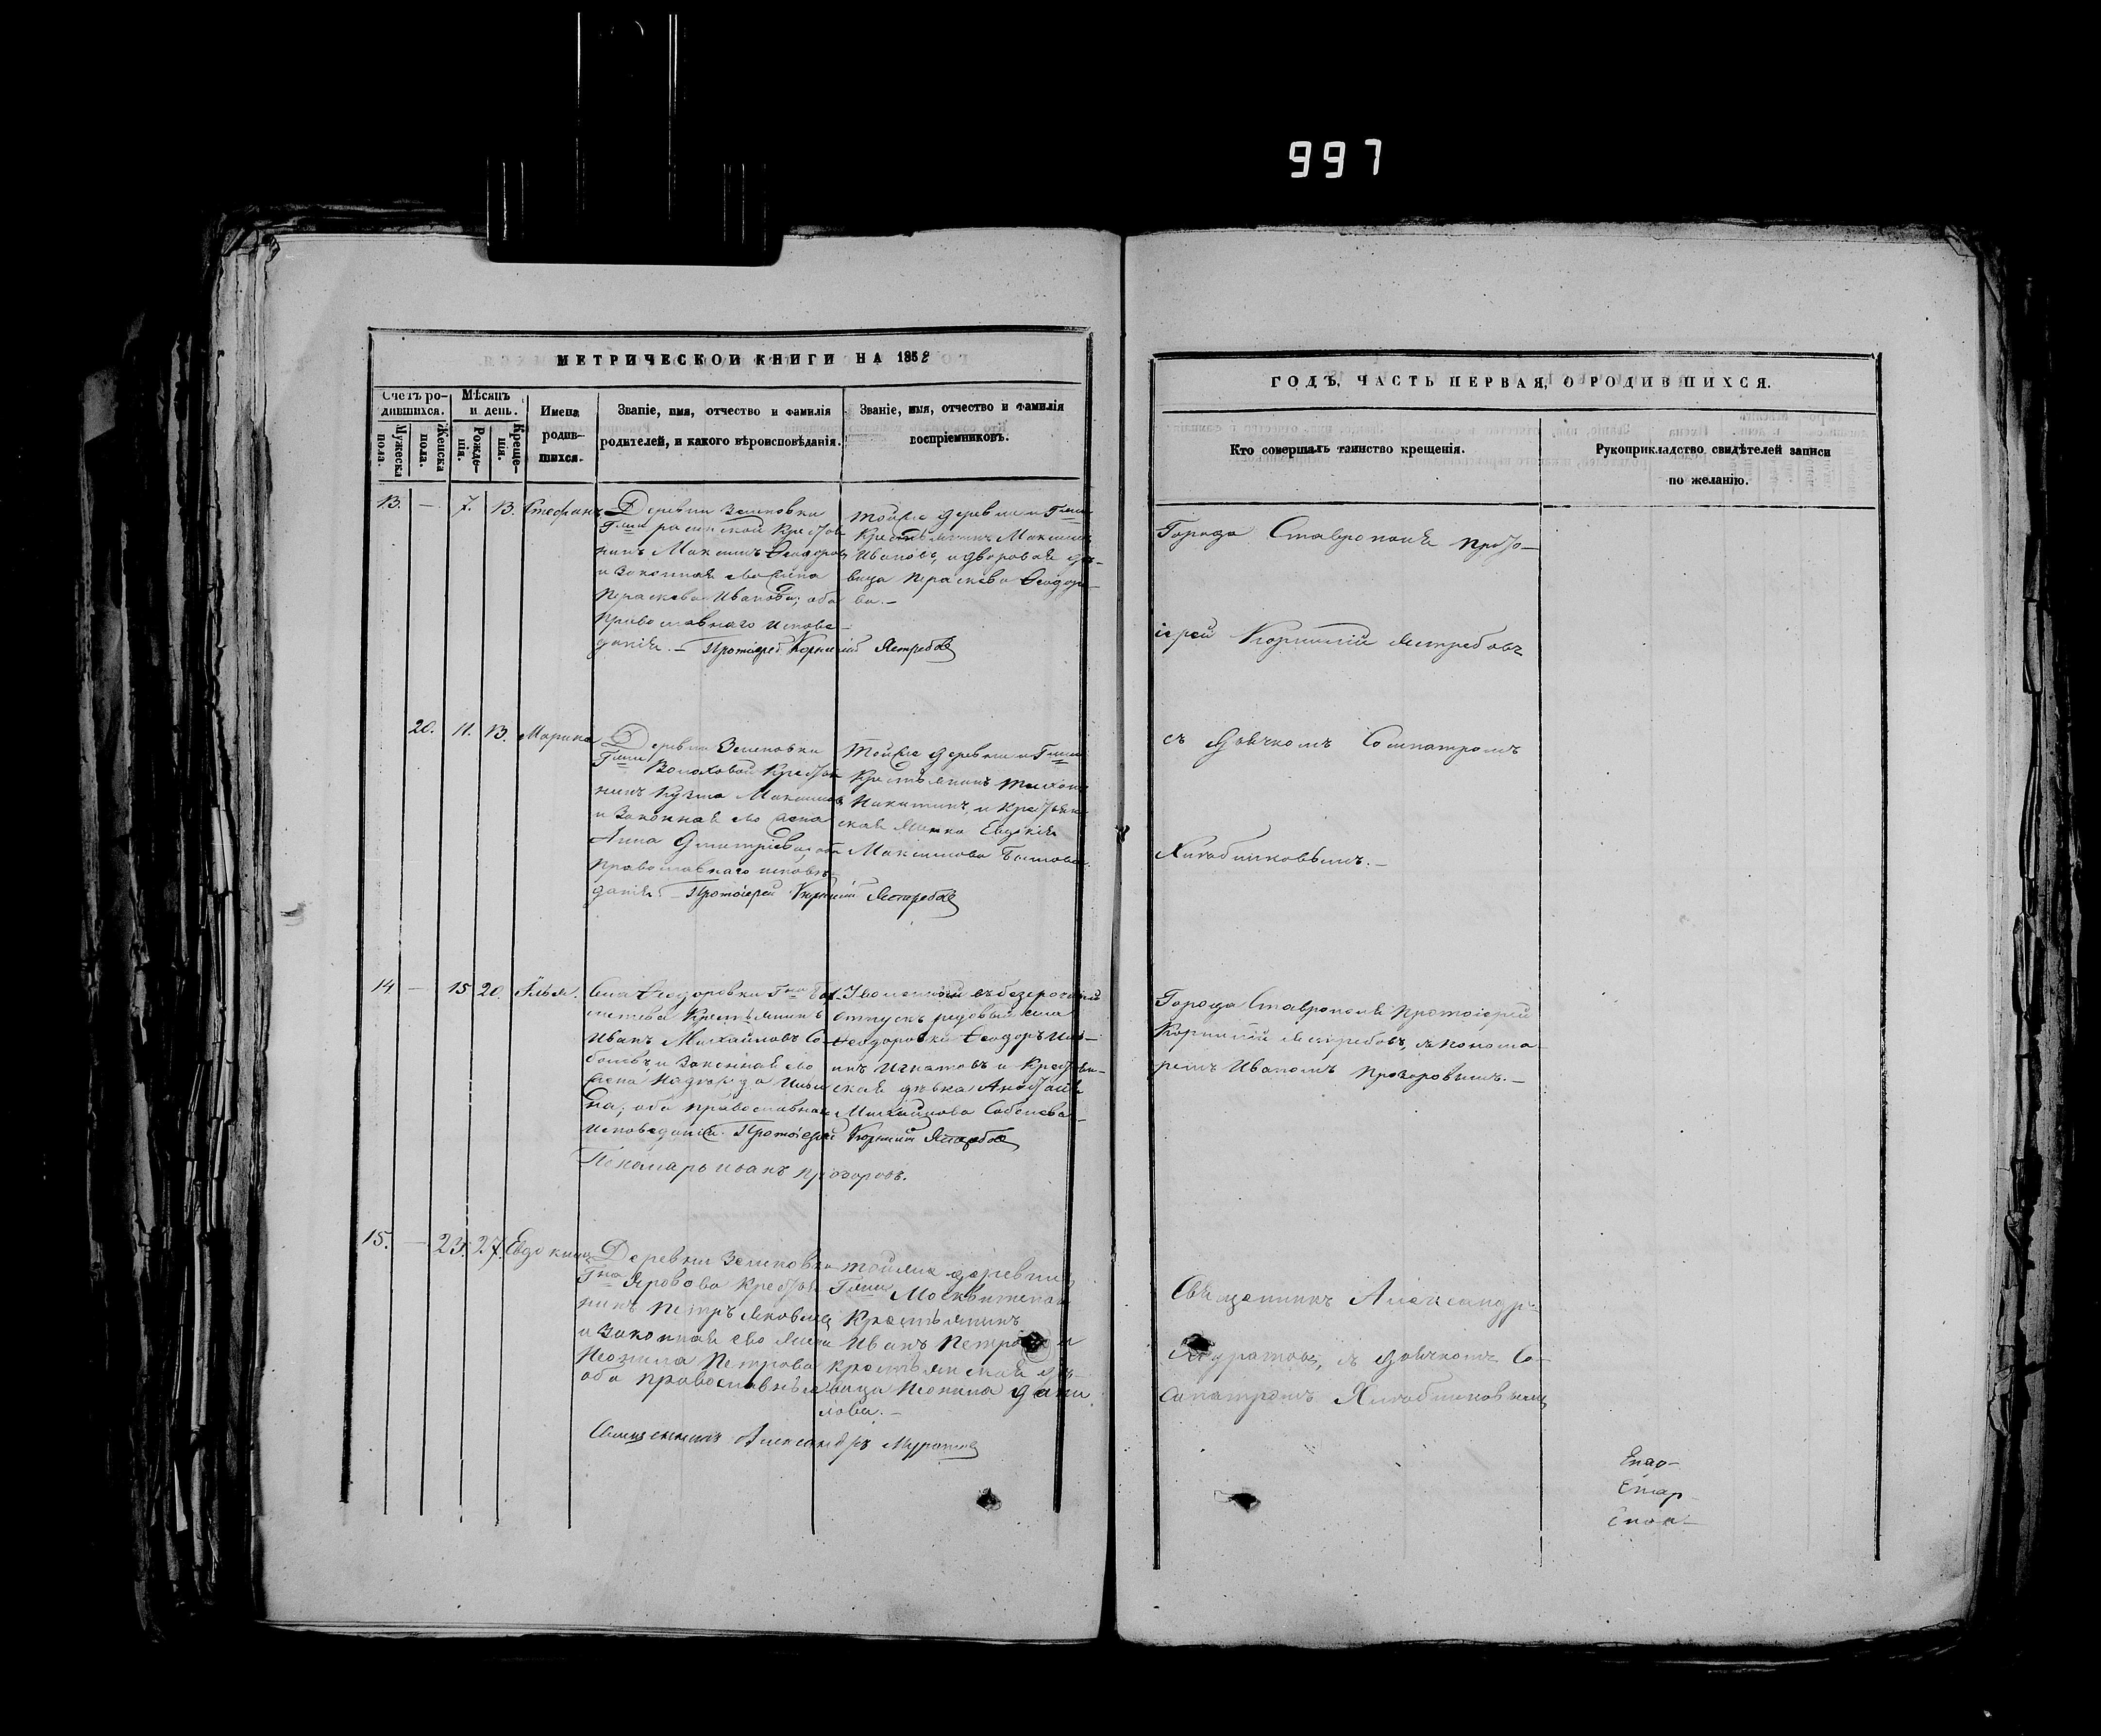 997
МЕТРИЧЕСКОЙ КНИГИ НА 1858
Счетъ ро-
дившихся.
Мужеска
пола.
Женска
пола.
Мѣсяцъ
и день.
Рожде-
нія.
Креще-
нія.
Имена
родив-
шихся.
Званіе, имя, отчество и фамилія
родителей, и какого вѣроисповѣданія.
Званіе, имя, отчество и фамилія
воспріемниковъ.
13. — 7. 13. Стефанъ
Деревни Зеленовки
Гжи
нинъ Максимъ Ѳеодоровъ
и Законная его жена
Параскева Иванова; оба
православнаго испове-
данія. — Протоіерей Корнилій Ястребовъ
тойже деревни и Гжи
Крестьянинъ Максимъ
Ивановъ, и дворовая дѣ-
вица Параскева Ѳеодоро-
ва. —
20. 11. 13. Марина
Деревни Зеленовки
Гжи
нинъ Кузма Максимовъ
и Законная его жена
Анна Дмитріева, оба
православнаго исповѣ-
данія. — Протоіерей Корнилій Ястребовъ
Тойже деревни и Гжи
Крестьянинъ Тихонъ
Никитинъ, и Крестьян-
ская Евдокія
Максимова
14 — 15 20. Илья.
Села Ѳеодоровки Гна
Крестьянинъ
Иванъ Михайловъ Со-
болевъ, и Законная его
жена Надежда Ильи-
на; оба православнаго
исповеданія. Протоіерей Корнилій Ястребовъ
Пономарь Иванъ Прозоровъ.
Уволенный въ безсрочный
отпускъ рядовый села
Ѳеодоровки Ѳеодоръ Иль-
инъ Игнатовъ и Крестьян-
ская дѣвка Анастасія
Михайлова Соболева —
15. — 23. 27. Евдокимъ
Деревни Зеленовки
Гна
нинъ Петръ Яковлевъ
и Законная его жена
Неонила Петрова
оба православные
Священникъ Александръ Муратовъ
тойже деревни
Гжи
Крестьянинъ
Иванъ Петровъ и
крестьянская дѣ-
вица Неонила Дани
лова. —
ГОДЪ, ЧАСТЬ ПЕРВАЯ, О РОДИВШИХСЯ.
Кто совершалъ таинство крещенія.
Рукоприкладство свидѣтелей записи
по желанію.
Города Ставрополя прото-
іерей Корнилій Ястребовъ
съ дьячкомъ Сосипатромъ
Хлѣбниковымъ. —
Города Ставрополя протоіерей
Корнилій Ястребовъ, съ понома-
ремъ Иваномъ Прозоровымъ. —
Священникъ Александръ
Муратовъ, съ дьячкомъ Со-
сипатромъ Хлѣбниковымъ